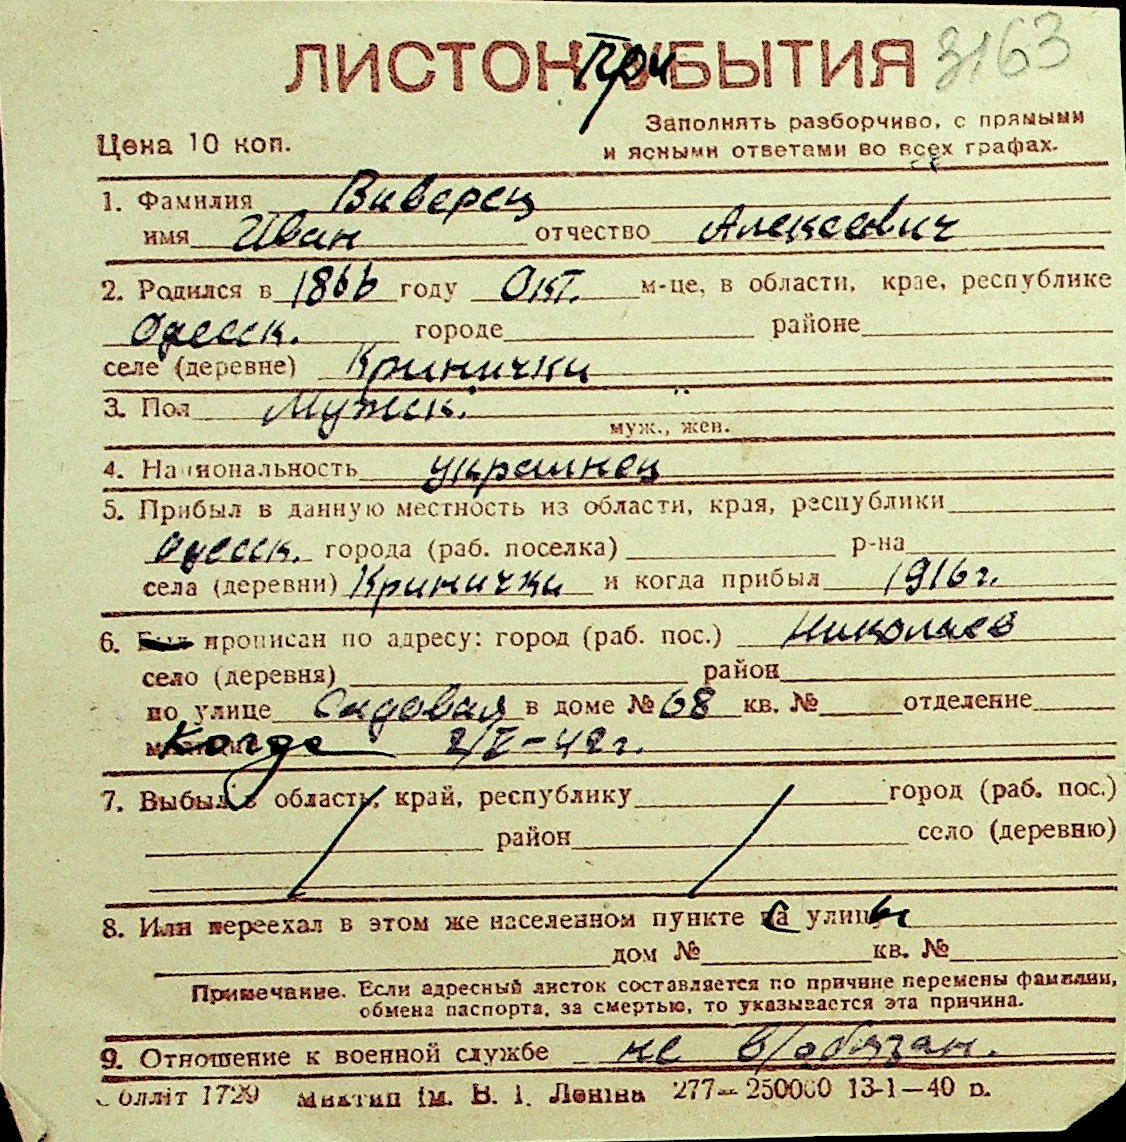 ЛИСТОК При УБЫТИЯ 3163
Цена 10 коп.
Заполнять разборчиво, с прямыми
и ясными ответами во всех графах.
1. Фамилия Виверец
имя Иван отчество Алексеевич
2. Родился в 1866 году Окт. м-це, в области, крае, республике
Одесск. городе районе
селе (деревне) Кринички
3. Пол Мужск.
муж., жен.
4. Национальность украинец
5. Прибыл в данную местность из области, края, республики
Одесск. города (раб. поселка) р-на
села (деревни) Кринички и когда прибыл 1916 г.
6. прописан по адресу: город (раб. пос.) Николаев
село (деревня) район
по улице Садовая в доме № 68 кв. № отделение
Когда 2/I-42 г.
7. Выбыл в область, край, республику город (раб. пос.)
район село (деревню)
8. Или переехал в этом же населенном пункте с улицы
дом № кв. №
Примечание. Если адресный листок составляется по причине перемены фамилии,
обмена паспорта, за смертью, то указывается эта причина.
9. Отношение к военной службе не в/обязан.
Облліт 1729 ім. В. І. Леніна 277—250000 13-1—40 р.